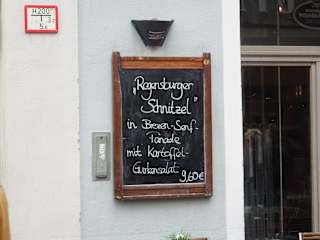 H200
1,3
5,5
„Regensburger
Schnitzel"
in Brezen-Senf-
Panade
mit Kartoffel-
Gurkensalat 9,60€